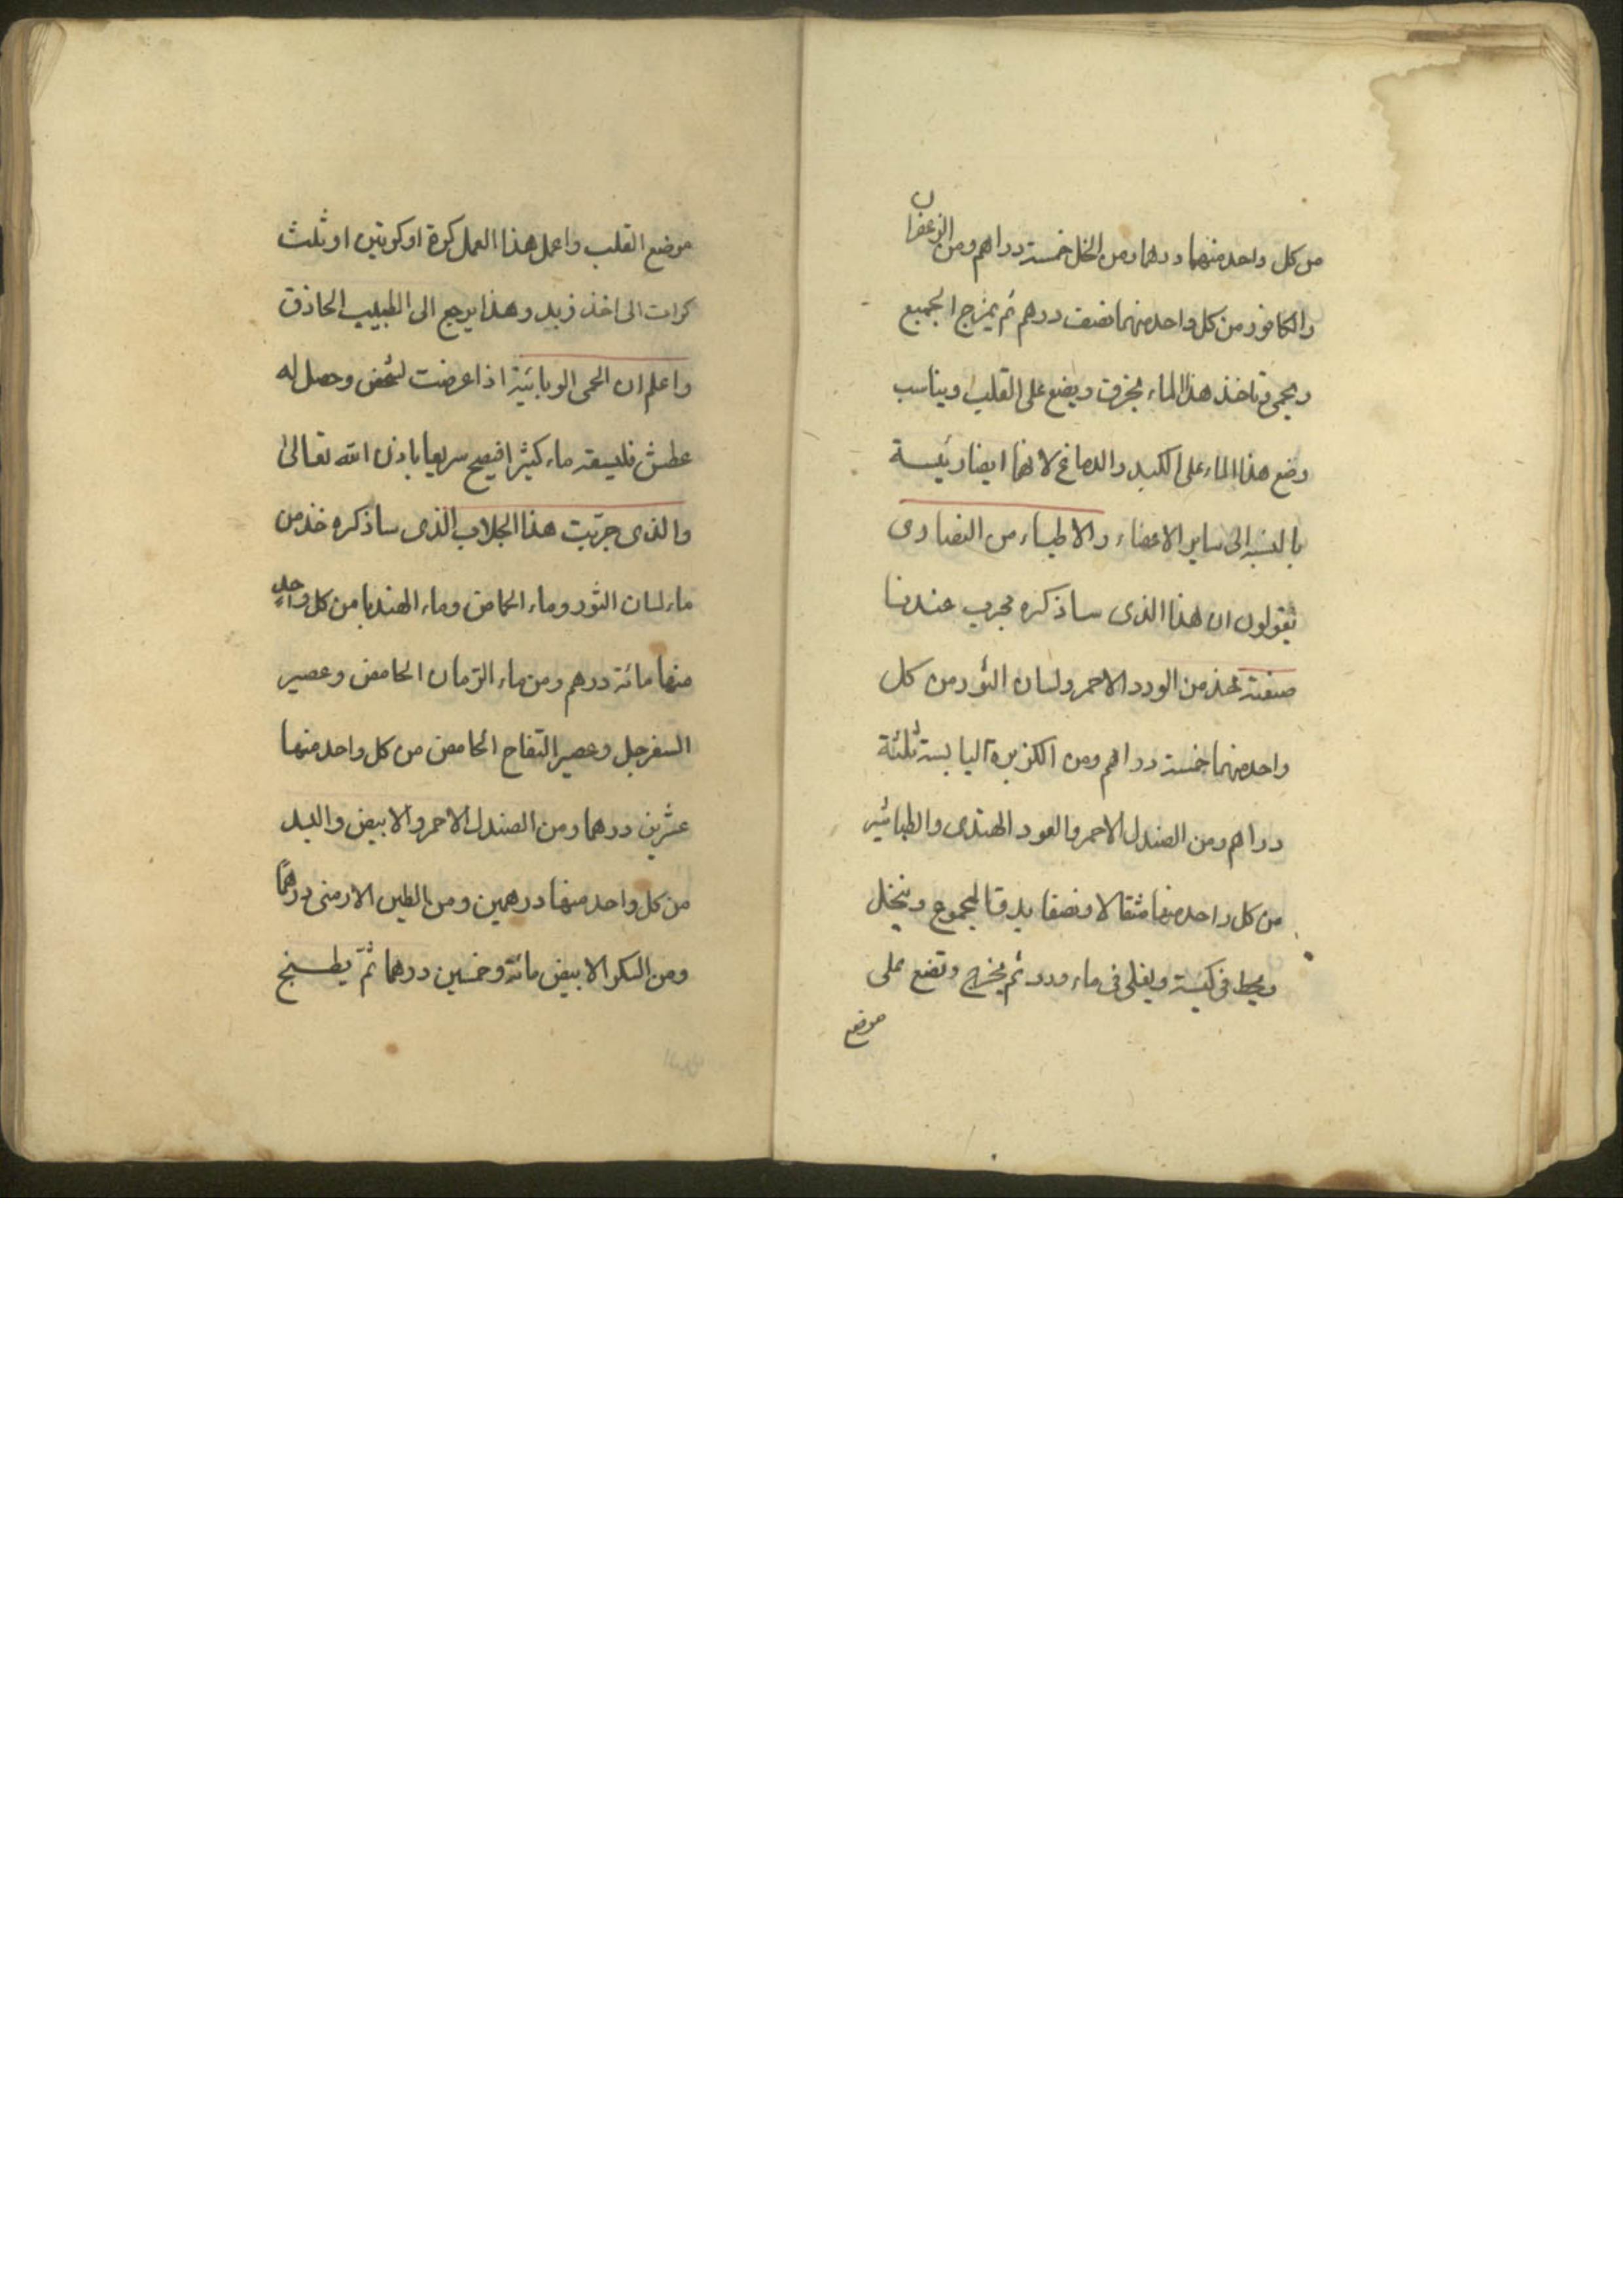 من كل واحد منهما درهما ومن الخل خمسة دراهم ومن الزعفران
والكافور من كل واحد منهما نصف درهم ثم يمزج الجميع
ويحمى وتاخذ هذا الماء بخرقة ويضع على القلب ويناسب
وضع هذا الماء على الكبد والدماغ لانهما ايضا رئيسة
بالنسبة الى ساير الاعضاء والاطباء من النصارى
يقولون ان هذا الذى ساذكره مجرب عندنا
صفته خذ من الورد الاحمر ولسان الثور من كل
واحد منهما خمسة دراهم ومن الكزبرة اليابسة ثلثة
دراهم ومن الصندل الاحمر والعود الهندى والطباشير
من كل واحد منها مثقالا ونصفا يدق المجموع وينخل
ويحط فى كيسة ويغلى فى ماء ورد ثم يخرج وتضع على
موضع
موضع القلب واعمل هذا العمل كرة او كرتين او ثلث
كرات الى اخذ زيد وهذا يرجع الى الطبيب الحاذق
واعلم ان الحمى الوبائية اذا عرضت لشخص وحصل له
عطش فليسقه ماء كثيرا فيصح سريعا باذن الله تعالى
والذى جربت هذا الجلاب الذى ساذكره خذ من
ماء لسان الثور وماء الحماض وماء الهندبا من كل واحد
منها مائة درهم ومن ماء الرّمان الحامض وعصير
السفرجل وعصير التفاح الحامض من كل واحد منها
عشرين درهما ومن الصندل الاحمر والابيض والبد
من كل واحد منها درهمين ومن الطين الارمنى درهمًا
ومن السكر الابيض مائة وخمسين درهما ثمّ يطبخ